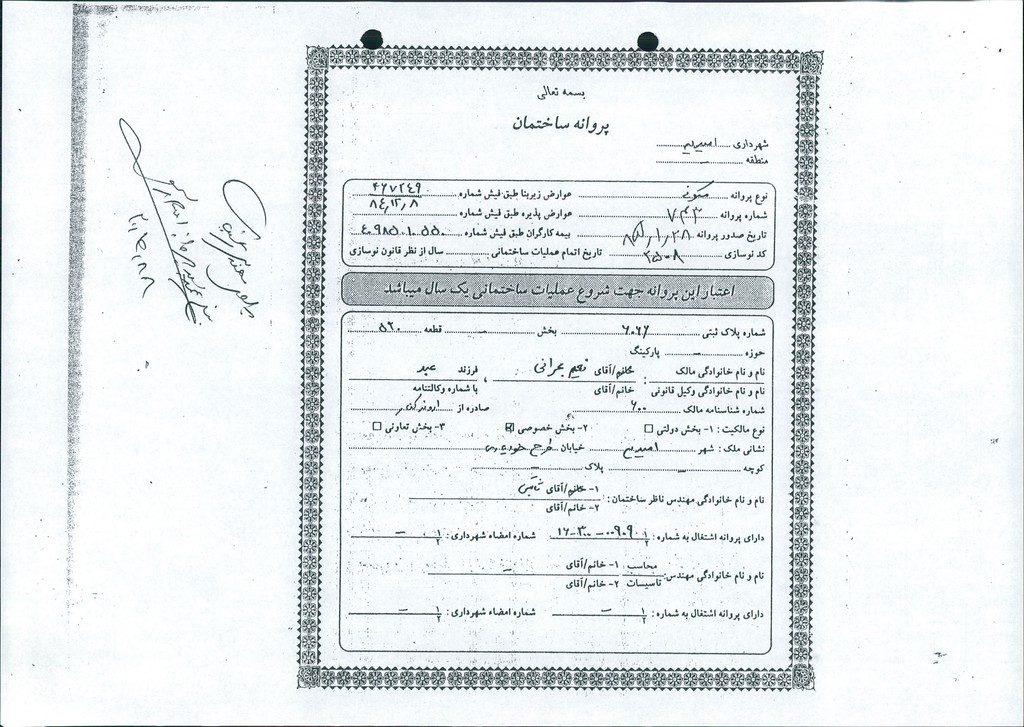 بسمه تعالی
پروانه ساختمان
شهرداری
منطقه
نوع پروانه مسکونی عوارض زیربنا طبق فیش شماره ۴۶۷۲۴۹
۸۴,۱۲,۸
شماره پروانه ۷۴۳ عوارض پذیره طبق فیش شماره
تاریخ صدور پروانه بیمه کارگران طبق فیش شماره
کد نوسازی ۲۵۰۸ تاریخ اتمام عملیات ساختمانی سال از نظر قانون نوسازی
اعتبار این پروانه جهت شروع عملیات ساختمانی یک سال میباشد
شماره پلاک ثبتی ۶۰۶۶ بخش – قطعه ۵۲۰
حوزه – پارکینگ
نام و نام خانوادگی مالک : خانم/آقای نعیم بحرانی فرزند عبد
نام و نام خانوادگی وکیل قانونی خانم/آقای با شماره وکالتنامه
شماره شناسنامه مالک ۶۰۰ صادره از
نوع مالکیت : ۱- بخش دولتی ☐ ۲- بخش خصوصی ☑ ۳- بخش تعاونی ☐
نشانی ملک : شهر خیابان طرح
کوچه – پلاک –
نام و نام خانوادگی مهندس ناظر ساختمان : ۱- خانم/آقای
۲- خانم/آقای
دارای پروانه اشتغال به شماره : ۱ ۱۶-۳۰۰-۰۹۰۹ شماره امضاء شهرداری : ۱ –
۲ ۲
نام و نام خانوادگی مهندس محاسب ۱- خانم/آقای –
تاسیسات ۲- خانم/آقای
دارای پروانه اشتغال به شماره : ۱ – شماره امضاء شهرداری : ۱ –
۲ ۲